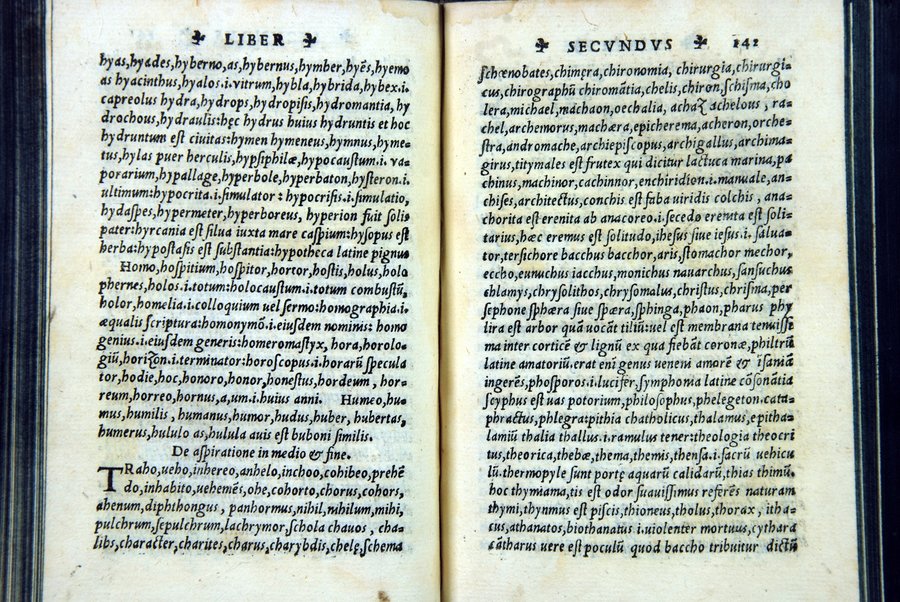 LIBER
hyas, hyades, hyberno, as, hybernus, hymber, hyẽs, hyemo
as hyacinthus, hyalos.i. vitrum, hybla, hybrida, hybex.i.
capreolus hydra, hydrops, hydropisis, hydromantia, hy
drochous, hydraulis: hęc hydrus huius hydruntis et hoc
hydruntum est ciuitas: hymen hymeneus, hymnus, hyme=
tus, hylas puer herculis, hypsiphilæ, hypocaustum.i. va=
porarium, hypallage, hyperbole, hyperbaton, hysteron.i.
ultimum: hypocrita.i. simulator: hypocrisis.i. simulatio,
hydaspes, hypermeter, hyperboreus, hyperion fuit solis
pater: hyrcania est silua iuxta mare caspium: hysopus est
herba: hypostasis est substantia: hypotheca latine pignus
Homo, hospitium, hospitor, hortor, hostis, holus, holo
phernes, holos.i. totum: holocaustum.i. totum combustũ,
holor, homelia.i. colloquium uel sermo: homographia.i.
æqualis scriptura: homonymõ.i. eiusdem nominis: homo
genius.i. eiusdem generis: homeromastyx, hora, horolo=
giũ, horizon.i. terminator: horoscopus.i. horarũ specula
tor, hodie, hoc, honoro, honor, honestus, hordeum, hor=
reum, horreo, hornus, a, um.i. huius anni. Humeo, hu=
mus, humilis, humanus, humor, hudus, huber, hubertas,
humerus, hululo as, hulula auis est buboni similis.
De aspiratione in medio & fine.
TRaho, ueho, inhereo, anhelo, inchoo, cohibeo, prehẽ
do, inhabito, uehemẽs, ohe, cohorto, chorus, cohors,
ahenum, diphthongus, panhormus, nihil, nihilum, mihi,
pulchrum, sepulchrum, lachrymor, schola chauos, cha=
libs, character, charites, charus, charybdis, chelę, schema
SECVNDVS 141
schœnobates, chimęra, chironomia, chirurgia, chirurgi=
cus, chirographũ chiromãtia, chelis, chiron, schisma, cho
lera, michael, machaon, oechalia, achaʒ achelous, ra=
chel, archemorus, machæra, epicherema, acheron, orche=
stra, andromache, archiepiscopus, archigallus, archima=
girus, titymales est frutex qui dicitur lactuca marina, pa
chinus, machinor, cachinnor, enchiridion.i. manuale, an=
chises, architectus, conchis est faba uiridis colchis, ana=
chorita est erenita ab anacoreo.i. secedo eremta est soli=
tarius, hæc eremus est solitudo, ihesus siue iesus.i. salua=
tor, tersichore bacchus bacchor, aris, stomachor mechor,
eccho, eunuchus iacchus, monichus nauarchus, sansuchus
chlamys, chrysolithos, chrysomalus, christus, chrisma, per
sephone sphæra siue spæra, sphinga, phaon, pharus phy
lira est arbor quã uocãt tiliũ: uel est membrana tenuissi=
ma inter corticẽ & lignũ ex qua fiebãt coronæ, philtrũ
latine amatoriũ. erat eni genus ueneni amorẽ & ĩsaniã
ingerẽs, phosporos.i. lucifer, symphonia latine cõsonãtia
scyphus est uas potorium, philosophus, phelegeton. cata=
phractus, phlegra: pithia chatholicus, thalamus, epitha=
lamiũ thalia thallus.i. ramulus tener: theologia theocri
tus, theorica, thebæ, thema, themis, thensa.i. sacrũ uehicu
lũ. thermopyle sunt portę aquarũ calidarũ, thias thimũ.
hoc thymiama, tis est odor suauissimus referẽs naturam
thymi, thynmus est piscis, thioneus, tholus, thorax, itha=
cus, athanatos, biothanatus i. uiolenter mortuus, cythara
cãtharus uere est poculũ quod baccho tribuitur dictũ